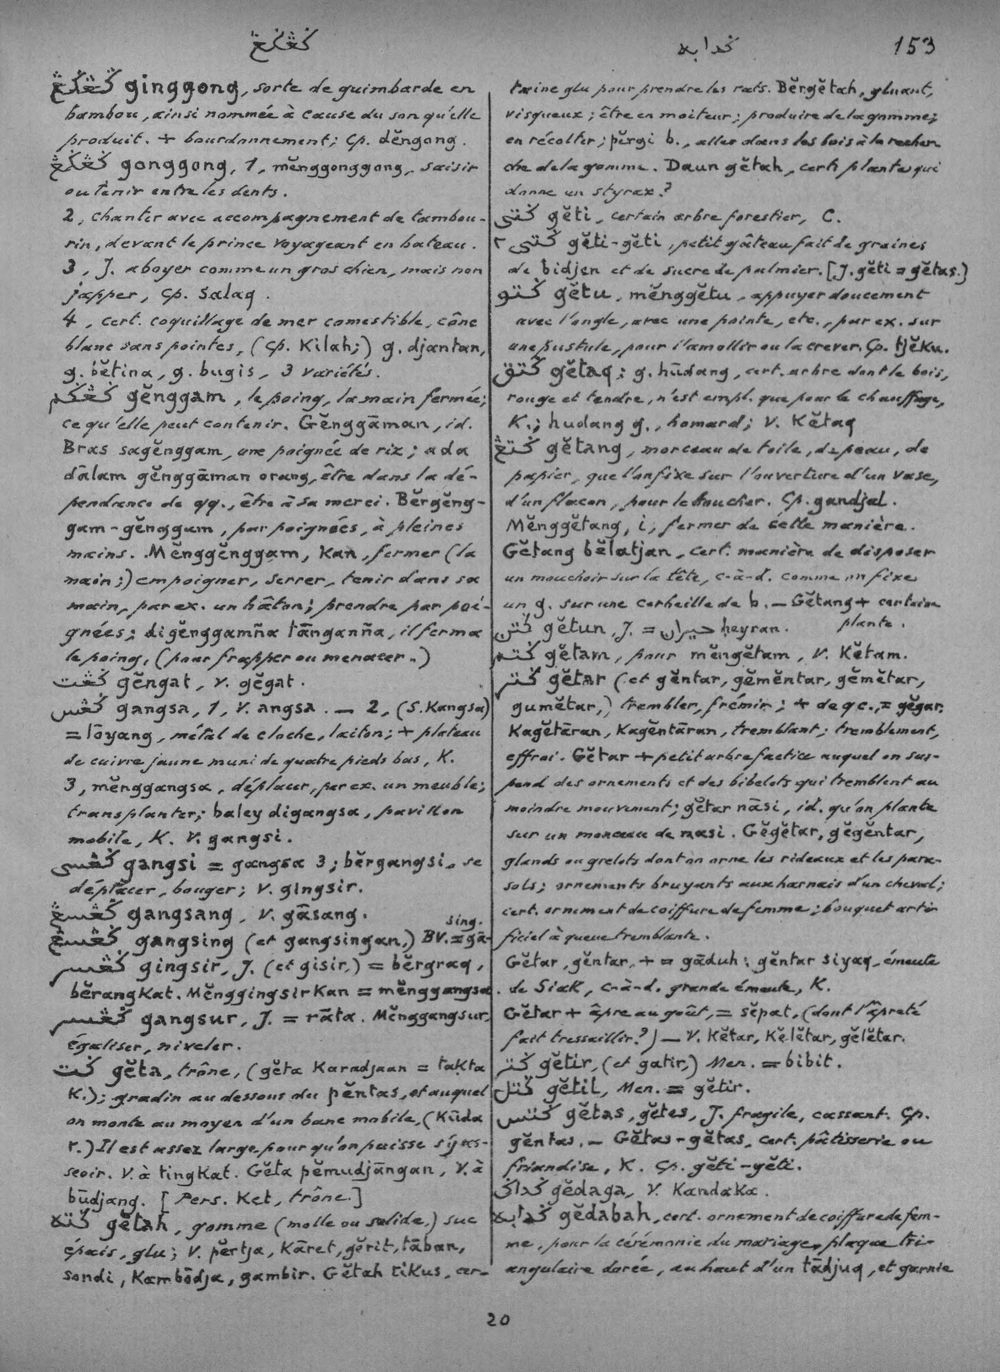 ݢڠݢڠ
ݢدابه
153
ݢڠݢڠ ginggong, sorte de guimbarde en
bambou, ainsi nommée à cause du son qu'elle
produit. + bourdonnement; Cp. dĕngong.
ݢڠݢڠ gonggong, 1, mĕnggonggong, saisir
ou tenir entre les dents.
2, chanter avec accompagnement de tambou-
rin, devant le prince voyageant en bateau.
3, J. aboyer comme un gros chien, mais non
japper, Cp. Salaq.
4, cert. coquillage de mer comestible, cône
blanc sans pointes, (Cp. Kilah;) g. djantan,
g. bĕtina, g. bugis, 3 variétés.
ݢڠݢم gĕnggam, le poing, la main fermée;
ce qu'elle peut contenir. Gĕnggāman, id.
Bras sagĕnggam, une poignée de riz; ada
dālam gĕnggāman orang, être dans la dé-
pendance de qq., être à sa merci. Bĕrgĕng-
gam-gĕnggam, par poignées, à pleines
mains. Mĕnggĕnggam, Kan, fermer (la
main;) empoigner, serrer, tenir dans sa
main, par ex. un bâton; prendre par poi-
gnées; digĕnggamña tānganña, il ferma
le poing, (pour frapper ou menacer.)
ݢڠت gĕngat, V. gĕgat.
ݢڠس gangsa, 1, V. angsa. — 2, (S. Kangsa)
= lōyang, métal de cloche, laiton; + plateau
de cuivre jaune muni de quatre pieds bas, K.
3, mĕnggangsa, déplacer, par ex. un meuble;
transplanter; baley digangsa, pavillon
mobile, K. V. gangsi.
ݢڠسي gangsi = gangsa 3; bĕrgangsi, se
déplacer, bouger; V. gingsir.
ݢڠسڠ gangsang, V. gāsang.
ݢڠسيڠ gangsing (et gangsingan,) BV. = gā-
sing.
ݢڠسر gingsir, J. (et gisir,) = bĕrgraq,
bĕrangKat. MĕnggingsirKan = mĕnggangsa.
ݢڠسر gangsur, J. = rāta. Mĕnggangsur,
égaliser, niveler.
ݢت gĕta, trône, (gĕta Karadjaan = takta
K.); gradin au dessous du pĕntas, et auquel
on monte au moyen d'un banc mobile, (Kūda
r.) Il est assez large pour qu'on puisse s'y as-
seoir. V. à tingKat. Gĕta pĕmudjāngan, V. à
būdjang. [Pers. Ket, trône.]
ݢته gĕtah, gomme (molle ou solide,) suc
épais, glu; V. pĕrtja, Kāret, gĕrit, tāban,
sondi, Kambōdja, gambir. Gĕtah tikus, cer-
taine glu pour prendre les rats. Bĕrgĕtah, gluant,
visqueux; être en moiteur; produire de la gomme;
en récolter; pĕrgi b., aller dans les bois à la recher-
che de la gomme. Daun gĕtah, cert. plante qui
donne un styrax?
ݢتي gĕti, certain arbre forestier, C.
ݢتي٢ gĕti-gĕti, petit gâteau fait de graines
de bidjen et de sucre de palmier. [J. gĕti = gĕtas.]
ݢتو gĕtu, mĕnggĕtu, appuyer doucement
avec l'ongle, avec une pointe, etc., par ex. sur
une pustule, pour l'amollir ou la crever. Cp. tjĕku.
ݢتق gĕtaq; g. hūdang, cert. arbre dont le bois,
rouge et tendre, n'est empl. que pour le chauffage,
K.; hudang g., homard; V. Kĕtaq
ݢتڠ gĕtang, morceau de toile, de peau, de
papier, que l'on fixe sur l'ouverture d'un vase,
d'un flacon, pour le boucher. Cp. gandjal.
Mĕnggĕtang, i, fermer de cette manière.
Gĕtang bĕlatjan, cert. manière de disposer
un mouchoir sur la tête, c-à-d. comme on fixe
un g. sur une corbeille de b. — Gĕtang + certaine
plante.
ݢتن gĕtun, J. = حيران ḥeyran.
ݢتم gĕtam, pour mĕngĕtam, V. Kĕtam.
ݢتر gĕtar (et gĕntar, gĕmĕntar, gĕmĕtar,
gumĕtar,) trembler, frémir; + de qc., = gĕgar.
Kagĕtāran, Kagĕntāran, tremblant; tremblement,
effroi. Gĕtar + petit arbre factice auquel on sus-
pend des ornements et des bibelots qui tremblent au
moindre mouvement; gĕtar nāsi, id. qu'on plante
sur un monceau de nasi. Gĕgĕtar, gĕgĕntar,
glands ou grelots dont on orne les rideaux et les para-
sols; ornements bruyants aux harnais d'un cheval;
cert. ornement de coiffure de femme; bouquet arti-
ficiel à queue tremblante.
Gĕtar, gĕntar, + = gāduh; gĕntar Siyaq, émeute
de Siak, c-à-d. grande émeute, K.
Gĕtar + âpre au goût, = sĕpat, (dont l'âpreté
fait tressaillir?) — V. Kĕtar, Kĕlĕtar, gĕlĕtar.
ݢتر gĕtir, (et gatir,) Men. = bibit.
ݢتل gĕtil, Men. = gĕtir.
ݢتس gĕtas, gĕtes, J. fragile, cassant. Cp.
gĕntas. — Gĕtas-gĕtas, cert. pâtisserie ou
friandise, K. Cp. gĕti-gĕti.
ݢداݢ gĕdaga, V. Kandaka.
ݢدابه gĕdābah, cert. ornement de coiffure de fem-
me, pour la cérémonie du mariage, plaque tri-
angulaire dorée, au haut d'un tādjuq, et garnie
20